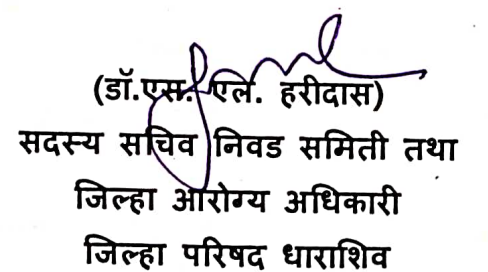 (डॉ.एस. एल. हरीदास)
सदस्य सचिव निवड समिती तथा
जिल्हा आरोग्य अधिकारी
जिल्हा परिषद धाराशिव